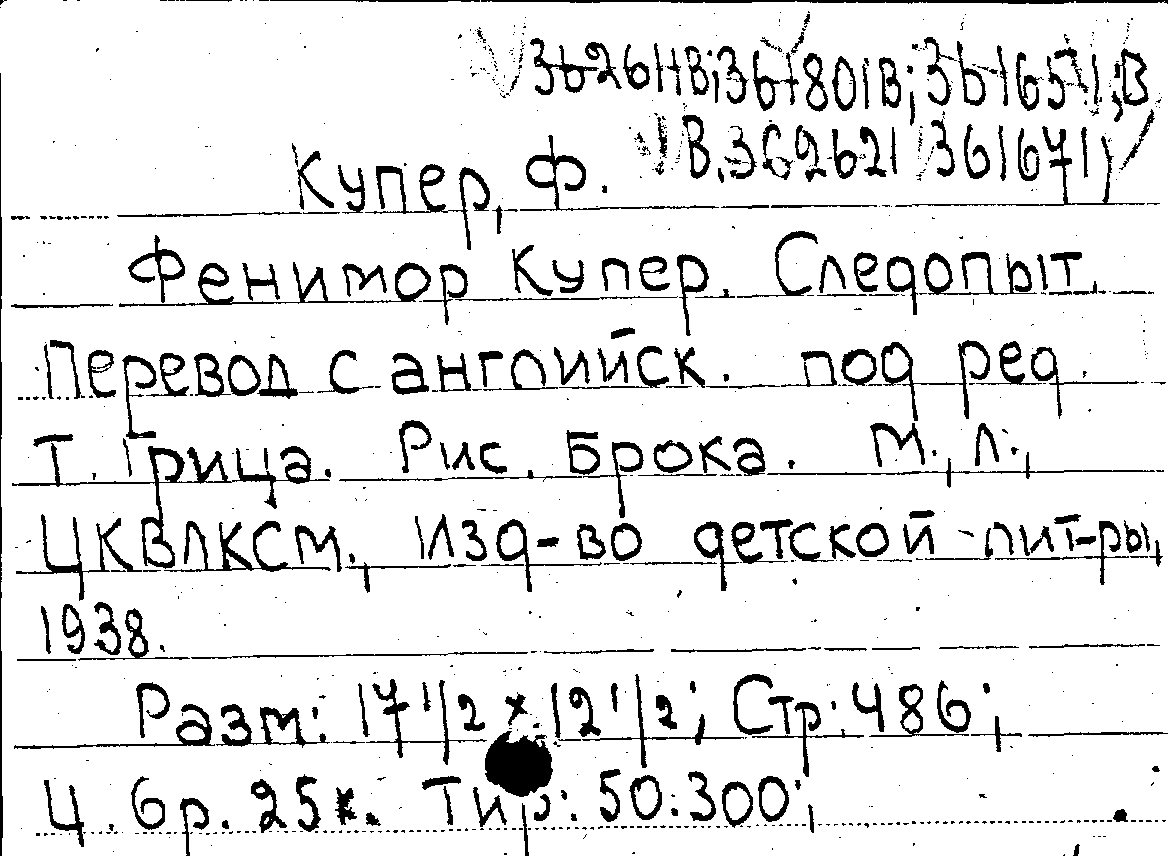 36261 В; 361801 В; 361651; В
В. 362621 361671;
Купер, Ф.
Фенимор Купер. Следопыт.
Перевод с английск. под ред.
Т. Грица. Рис. Брока. М., Л.,
ЦКВЛКСМ., Изд-во детской лит-ры,
1938.
Разм: 17 1/2 × 12 1/2; Стр: 486;
Ц. 6р. 25к. Тир: 50.300;